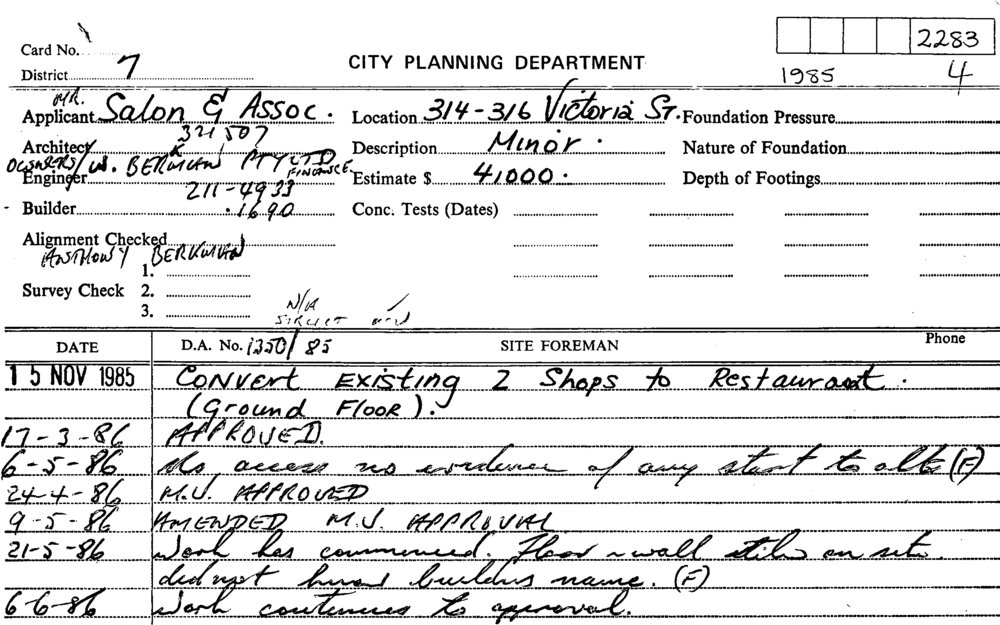 Card No.
2283
CITY PLANNING DEPARTMENT
District 7
1985 4
MR.
Applicant Salon & Assoc. Location 314-316 Victoria St. Foundation Pressure
321507
Architect Description Minor. Nature of Foundation
OWNERS/ W. BERKMAN PTY LTD
FINANCE
Engineer Estimate $ 41000. Depth of Footings
211-4933
Builder .1690 Conc. Tests (Dates)
Alignment Checked
ANTHONY BERKMAN
1.
Survey Check 2.
N/A
3.
DATE D.A. No. 1350/85 SITE FOREMAN Phone
15 NOV 1985 Convert Existing 2 Shops to Restaurant.
(Ground Floor).
17-3-86 APPROVED.
6-5-86 No access no evidence of any start to alts (F)
24-4-86 M.J. APPROVED
9-5-86 AMENDED M.J. APPROVAL
21-5-86 Work has commenced. Floor wall on site.
did not builders name. (F)
6-6-86 Work continues to approval.